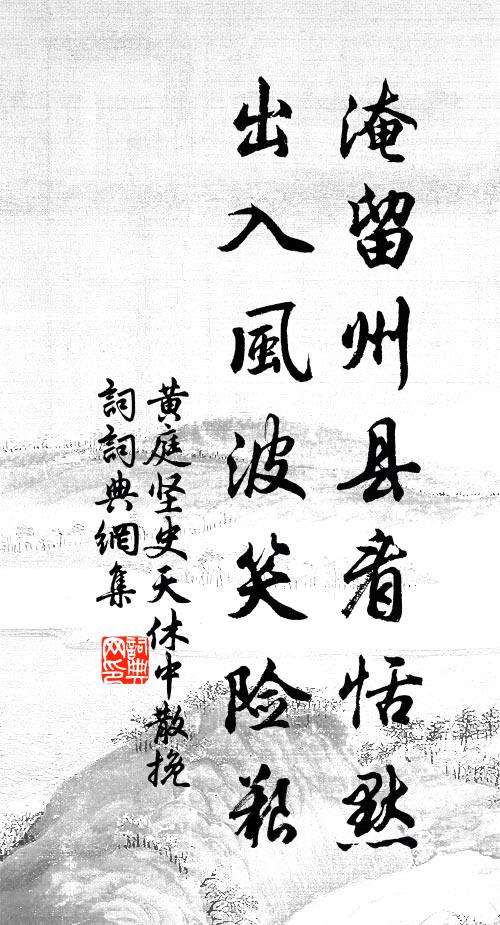 淹留州县看恬默
出入風波笑险艱
黄庭坚史天休中散挽
詞詞典網集
詞典网印